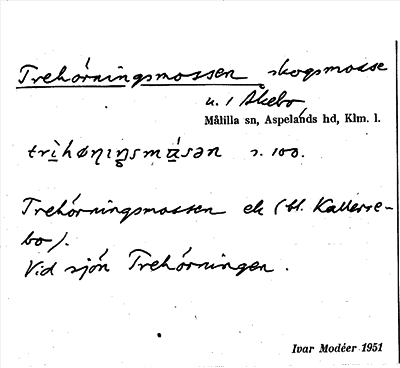 Trehörningsmossen skogsmosse
u. / Åkebo
Målilla sn, Aspelands hd, Klm. l.
trìhøṇıṇsmásən s. 100.
Trehörningsmossen ek (bl. Kallerre-
bo).
Vid sjön Trehörningen.
Ivar Modéer 1951